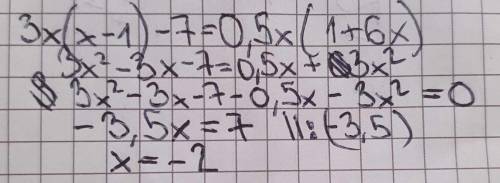 3x(x-1)-7=0,5x(1+6x)
3x²-3x-7=0,5x+3x²
3x²-3x-7-0,5x-3x²=0
-3,5x=7 ||:(-3,5)
x=-2